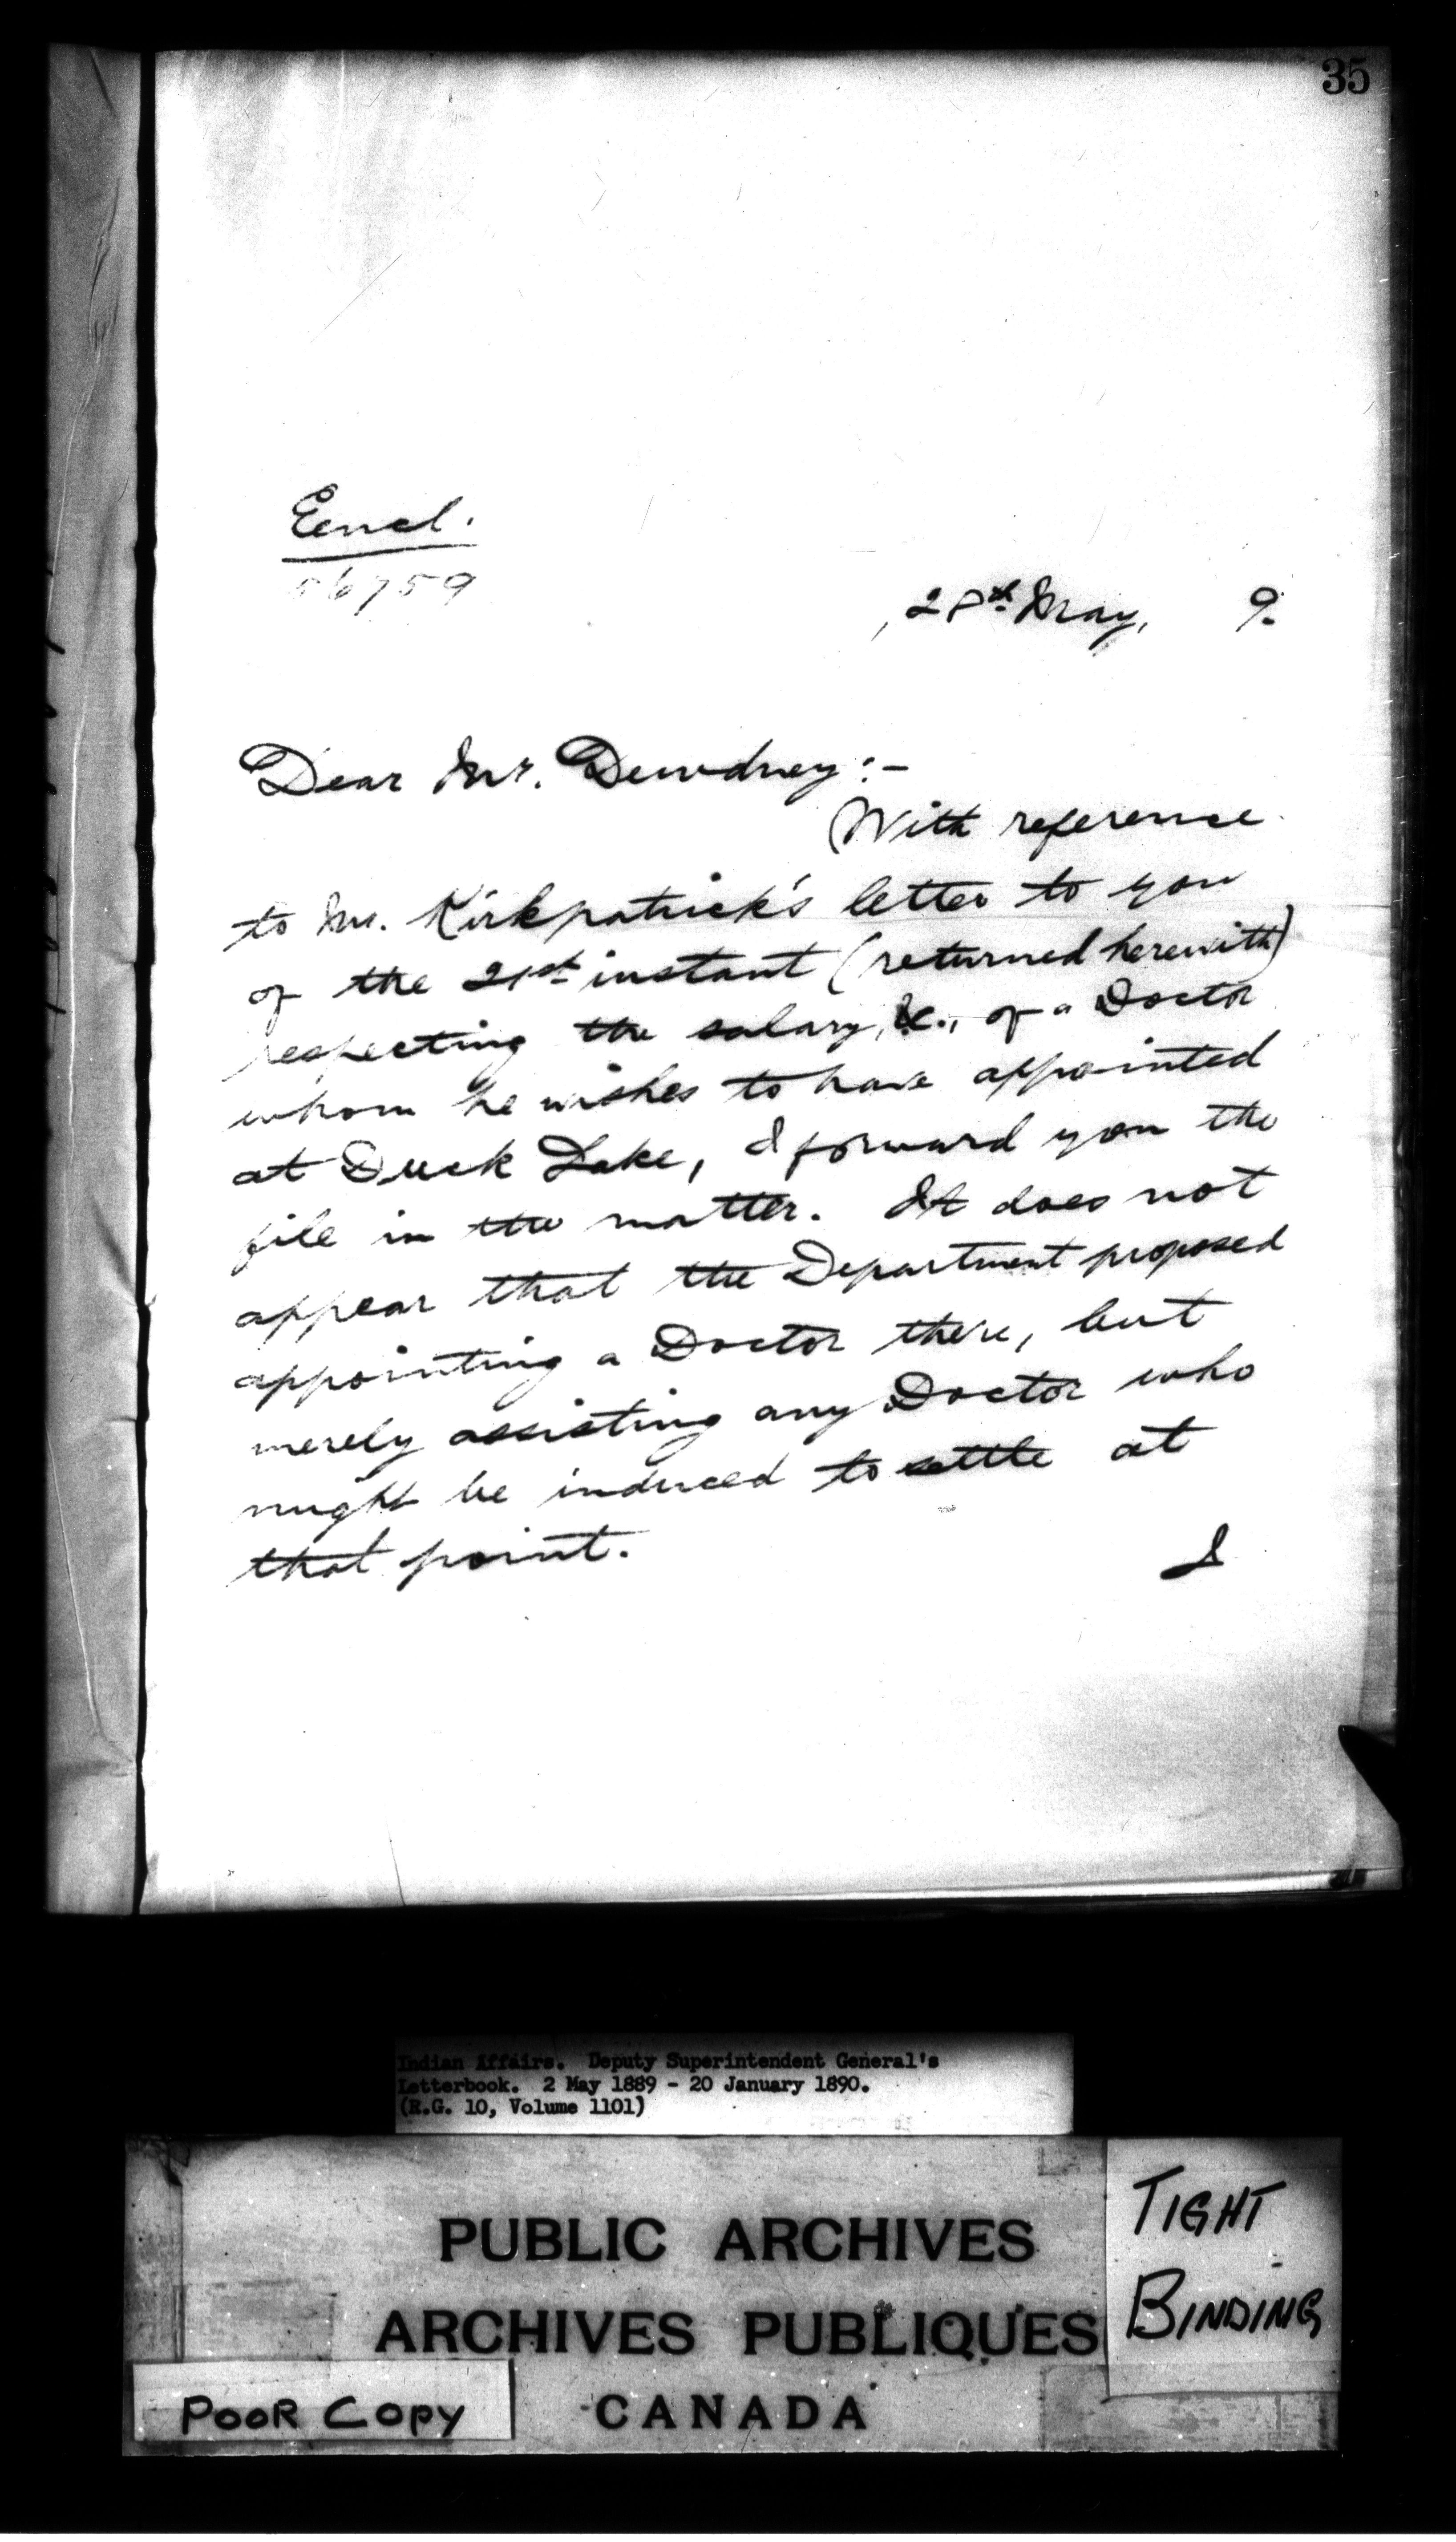 35
Encl.
56759
28th May, 9.
Dear Mr. Dewdney:-
With reference
to Mr. Kirkpatrick's letter to you
of the 21st instant (returned herewith)
respecting the salary, &c., of a Doctor
whom he wishes to have appointed
at Duck Lake, I forward you the
file in the matter. It does not
appear that the Department proposed
appointing a Doctor there, but
merely assisting any Doctor who
might be induced to settle at
that point.
I
Indian Affairs. Deputy Superintendent General's
Letterbook. 2 May 1889 - 20 January 1890.
(R.G. 10, Volume 1101)
PUBLIC ARCHIVES
ARCHIVES PUBLIQUES
CANADA
TIGHT
BINDING
POOR COPY